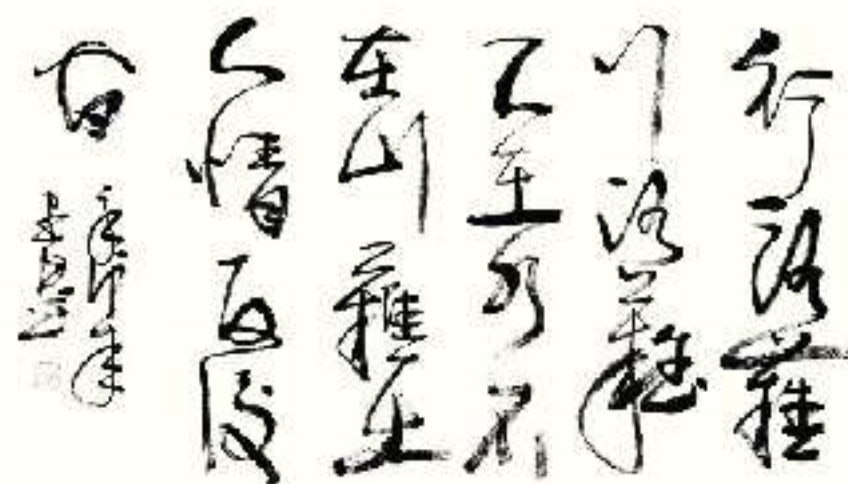 行路難
行路難
不在水不
在山 在
人情反覆
間
辛卯年